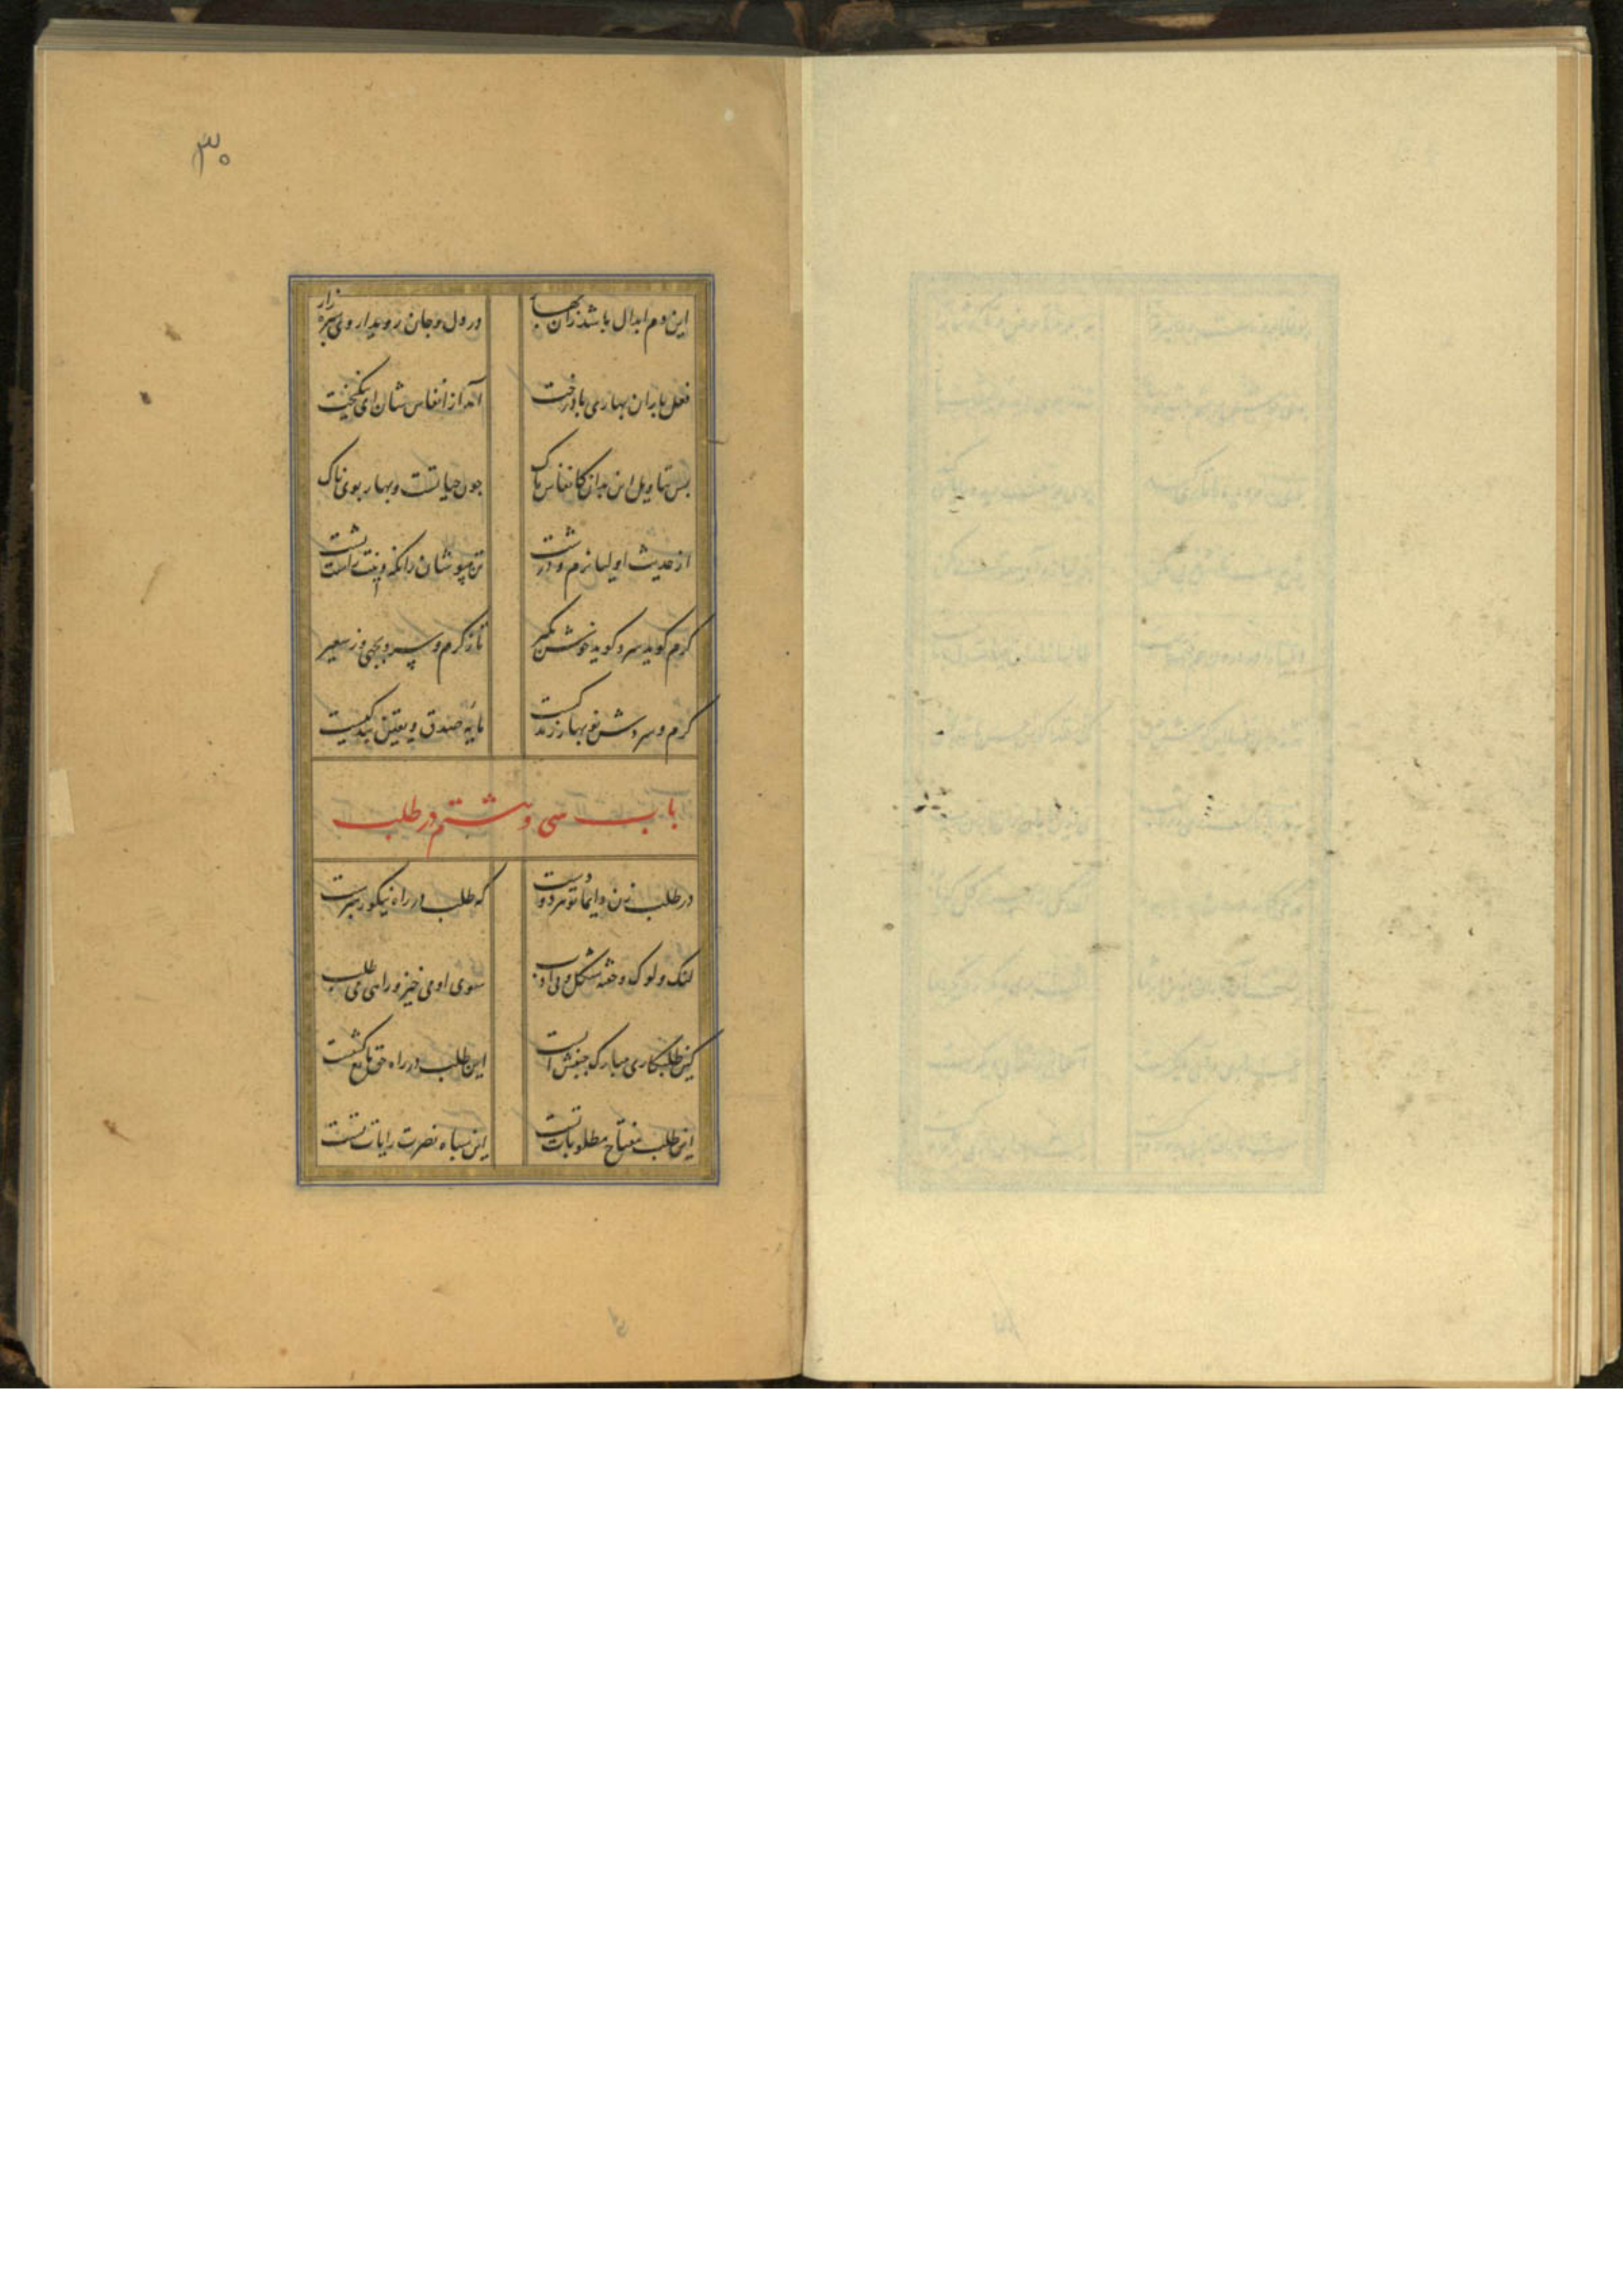 ۳۰
این دم ابدال باشد زان بهار در دل و جان روید از وی سبزه زار
فعل باران بهاری با درخت آید از انفاس شان ای نیکبخت
پس بتاویل این بدان کانفاس پاک چون حیاتست و بهار بوی تاک
از حدیث اولیا نرم و درشت تن مپوشان زانکه دینت راست پشت
گرم گوید سرد گوید خوش بگیر تا ز گرم و سرد بجهی وز سعیر
گرم و سردش نوبهار زندگیست مایه صدق و یقین بندگیست
باب سی و هشتم در طلب
در طلب زن دایما تو هر دو دست که طلب در راه نیکو رهبرست
لنگ و لوک و خفته شکل و بی ادب سوی او می خیز و را می طلب
کین طلبکاری مبارک جنبش است این طلب در راه حق مانع کشست
این طلب مفتاح مطلوبات تست این سپاه نصرت رایات تست